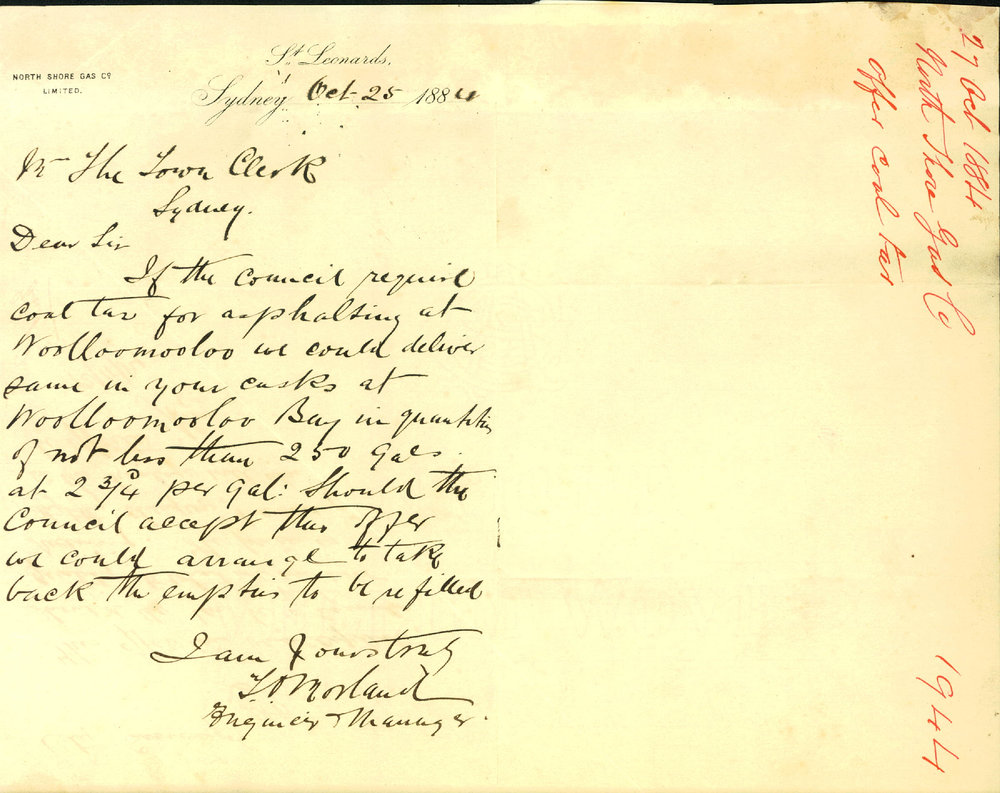 NORTH SHORE GAS Cº
LIMITED.
St. Leonards,
Sydney Oct 25 1884
The Town Clerk
Sydney.
Dear Sir
If the Council require
coal tar for asphalting at
Woolloomooloo we could deliver
same in your casks at
Woolloomooloo Bay in quantities
of not less than 250 Gals.
at 2 3/4 d per Gal: Should the
Council accept this offer
we could arrange to take
back the empties to be refilled
I am Yours truly
Morland
Engineer & Manager.
27 Oct 1884
North Shore Gas Co
Offer Coal tar
1944